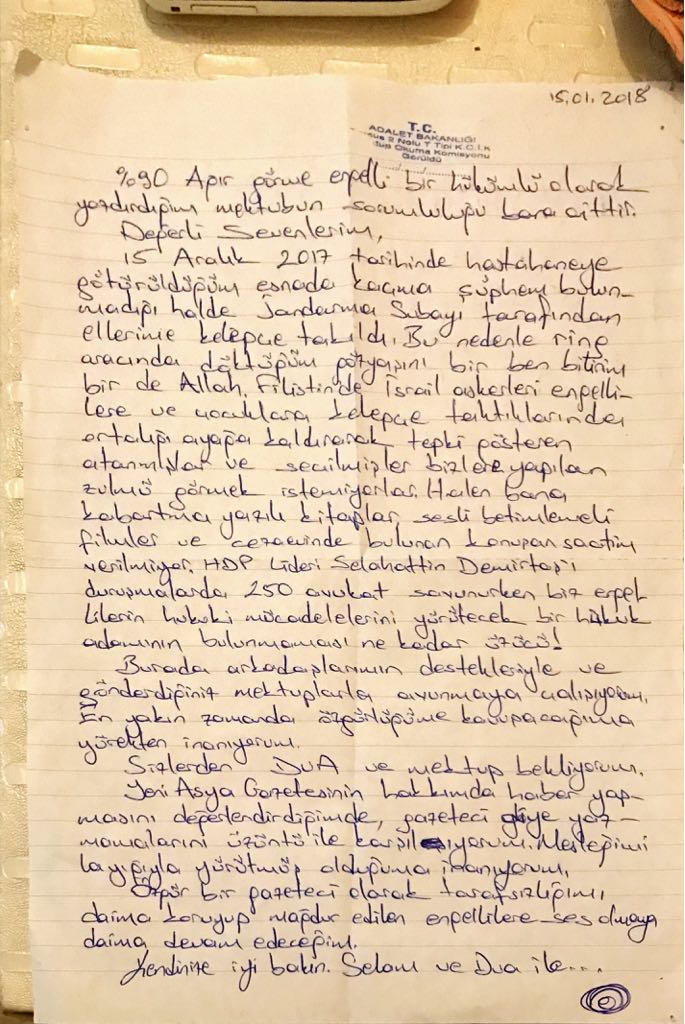 15.01.2018
T.C.
ADALET BAKANLIĞI
2 Nolu T Tipi K.C.İ.K
Okuma Komisyonu
Görüldü
%90 Ağır görme engelli bir hükümlü olarak
yazdırdığım mektubun sorumluluğu bana aittir.
Değerli Sevenlerim,
15 Aralık 2017 tarihinde hastahaneye
götürüldüğüm esnada kaçma şüphem bulun-
madığı halde Jandarma Subayı tarafından
ellerime kelepçe takıldı. Bu nedenle ring
aracında döktüğüm gözyaşını bir ben bilirim
bir de Allah. Filistin'de İsrail askerleri engelli-
lere ve çocuklara kelepçe taktıklarında
ortalığı ayağa kaldırarak tepki gösteren
atanmışlar ve seçilmişler bizlere yapılan
zulmü görmek istemiyorlar. Halen bana
kabartma yazılı kitaplar, sesli betimlemeli
filmler ve cezaevinde bulunan konuşan saatim
verilmiyor. HDP Lideri Selahattin Demirtaş'ı
duruşmalarda 250 avukat savunurken biz engel
lilerin hukuki mücadelelerini yürütecek bir hukuk
adamının bulunmaması ne kadar üzücü!
Burada arkadaşlarımın destekleriyle ve
gönderdiğiniz mektuplarla avunmaya çalışıyorum.
En yakın zamanda özgürlüğüme kavuşacağıma
yürekten inanıyorum.
Sizlerden DUA ve mektup bekliyorum.
Yeni Asya Gazetesinin hakkımda haber yap-
masını değerlendirdiğimde, gazeteci diye yaz-
mamalarını üzüntü ile karşılıyorum. Mesleğimi
layığıyla yürütmüş olduğuma inanıyorum.
Özgür bir gazeteci olarak tarafsızlığımı
daima koruyup mağdur edilen engellilere ses olmaya
daima devam edeceğim.
Kendinize iyi bakın. Selam ve Dua ile...